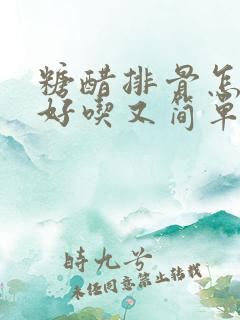 糖醋排骨怎
好喫又简单
時九兮
未经同意禁止转载